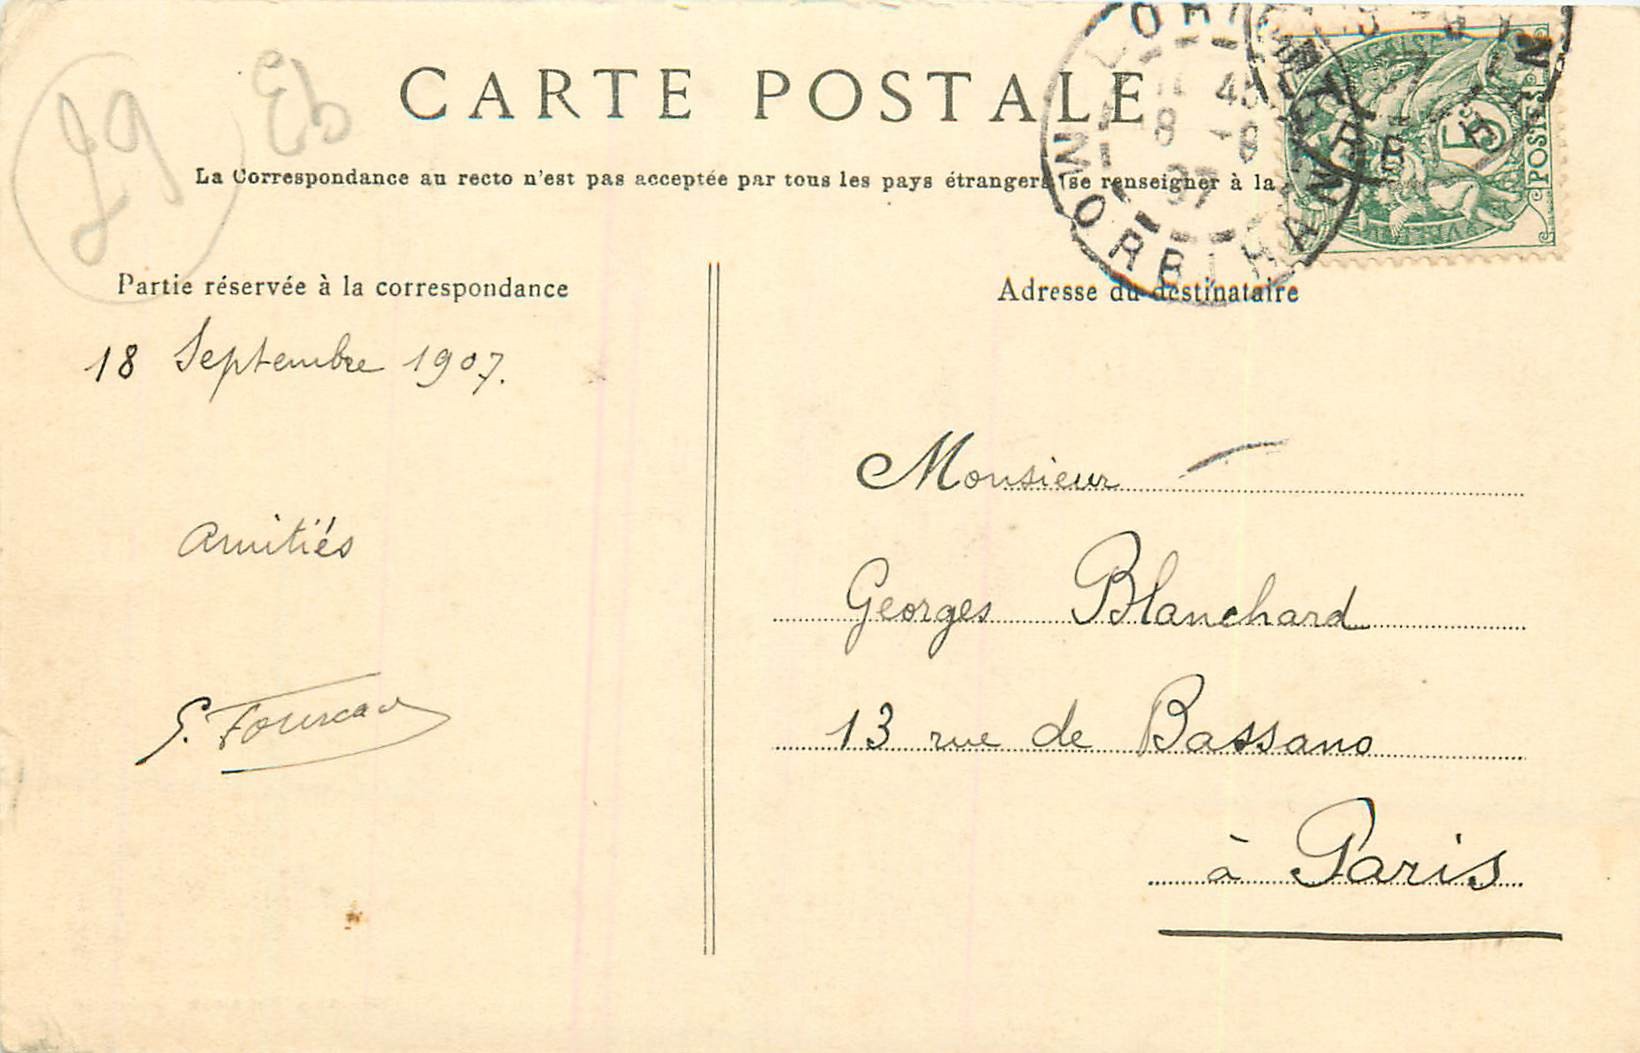 29
Eb
CARTE POSTALE
La Correspondance au recto n'est pas acceptée par tous les pays étrangers (se renseigner à la
Partie réservée à la correspondance
Adresse du destinataire
LORIENT
MORBIHAN
POSTES
5
18 Septembre 1907.
Amitiés
Monsieur
Georges Blanchard
13 rue de Bassano
à Paris